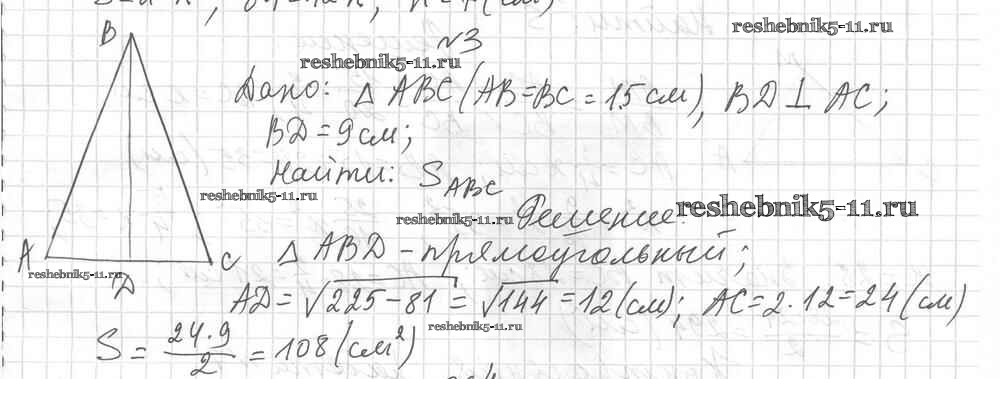 №3
Дано: △ ABC (AB=BC = 15 см), BD ⊥ AC;
BD = 9 см;
Найти: S_ABC
Решение:
△ ABD - прямоугольный;
AD = √225-81 = √144 = 12 (см); AC = 2·12 = 24 (см)
S = 24·9/2 = 108 (см²)
B
A
D
C
reshebnik5-11.ru
reshebnik5-11.ru
reshebnik5-11.ru
reshebnik5-11.ru
reshebnik5-11.ru
reshebnik5-11.ru
reshebnik5-11.ru